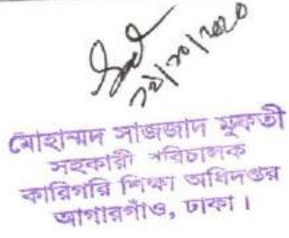 মোহাম্মদ সাজজাদ মুকতী
সহকারী পরিচালক
কারিগরি শিক্ষা অধিদপ্তর
আগারগাঁও, ঢাকা।